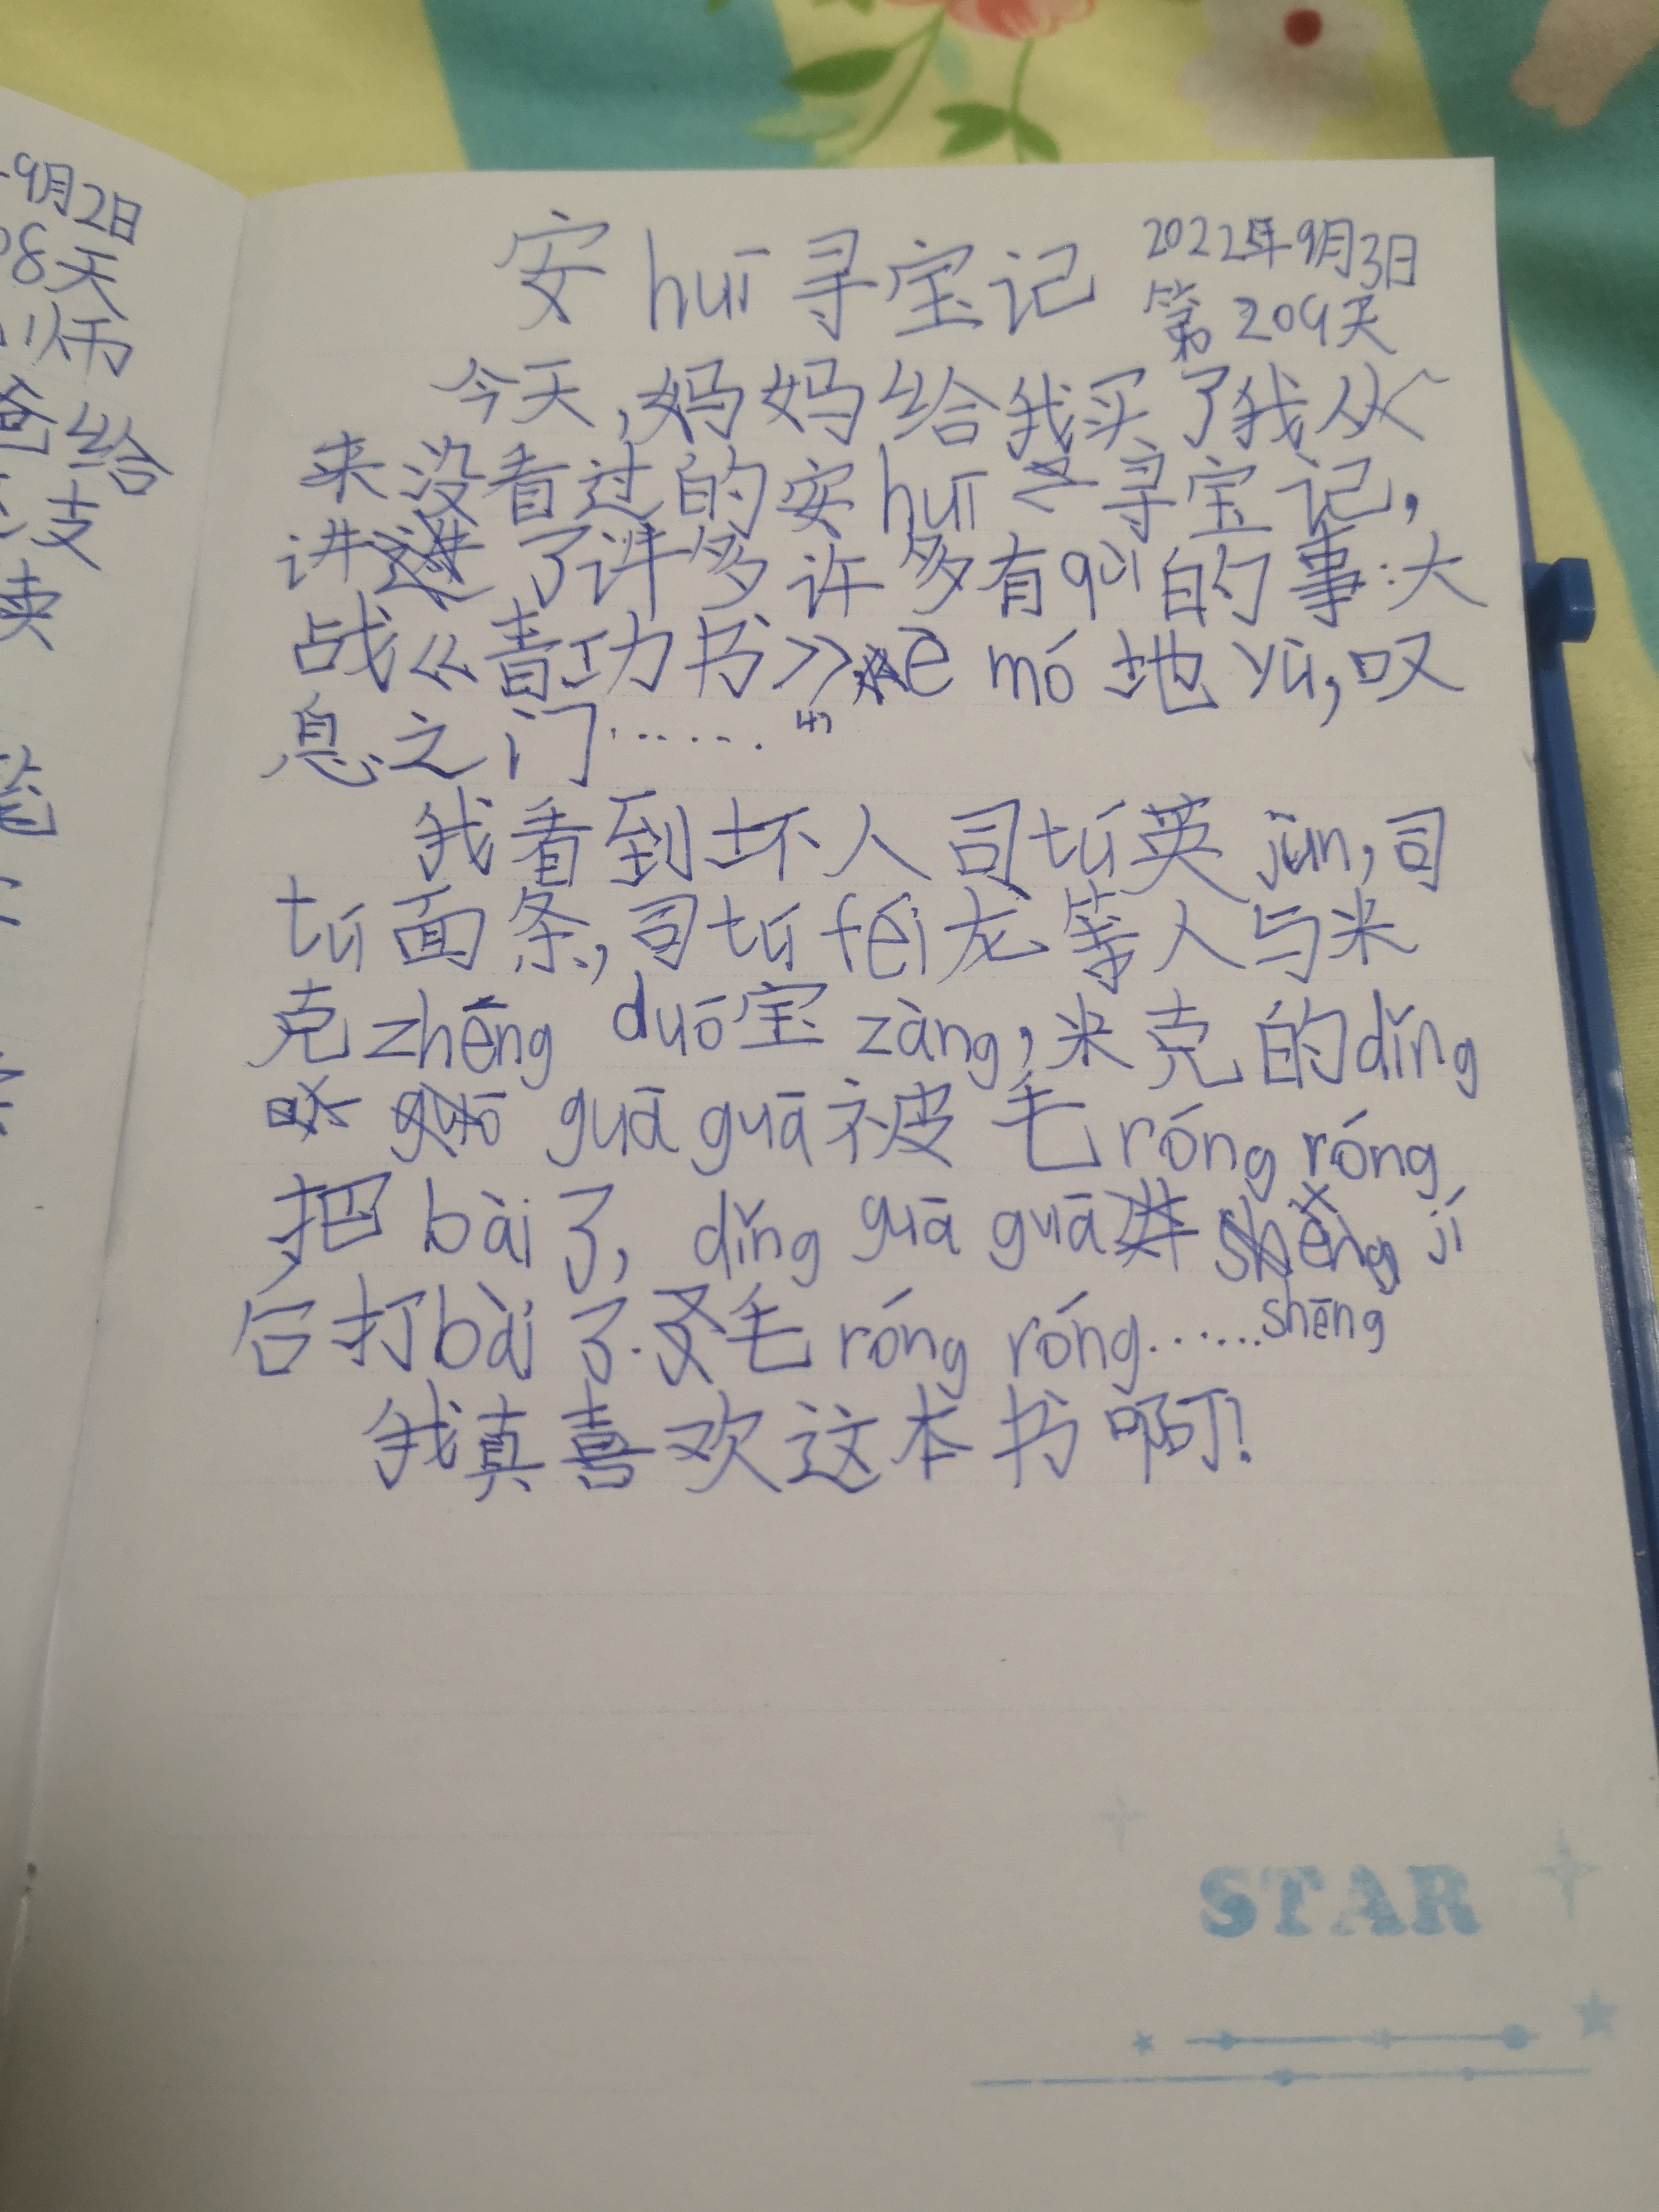 9月2日
08天
爸给
支
读
安huī寻宝记
2022年9月3日
第209天
今天,妈妈给我买了我从
来没看过的安huī寻宝记,
讲了许多许多有qù的事:大
战《青功书》è mó地yù,叹
息之门……
我看到坏人司tú英jùn,司
tú面条,司tú féi龙等人与米
克zhēng duó宝zàng,米克的dǐng
guā guā被毛róng róng
把bài了,dǐng guā guā shēng jí
后打bài了毛róng róng……
我真喜欢这本书啊!
STAR